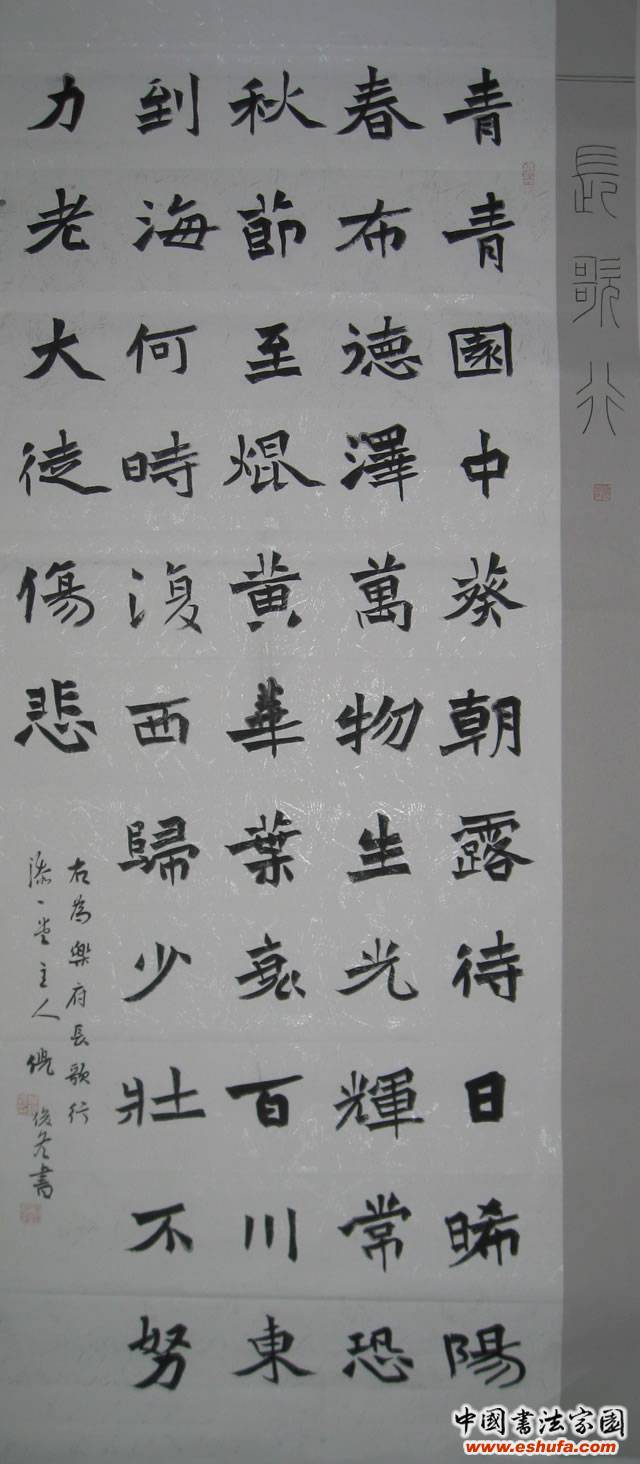 長歌行
青青園中葵朝露待日晞陽
春布德澤萬物生光輝常恐
秋節至焜黃華葉衰百川東
到海何時復西歸少壯不努
力老大徒傷悲
右為樂府長歌行
一堂主人書
中國書法家園
www.eshufa.com